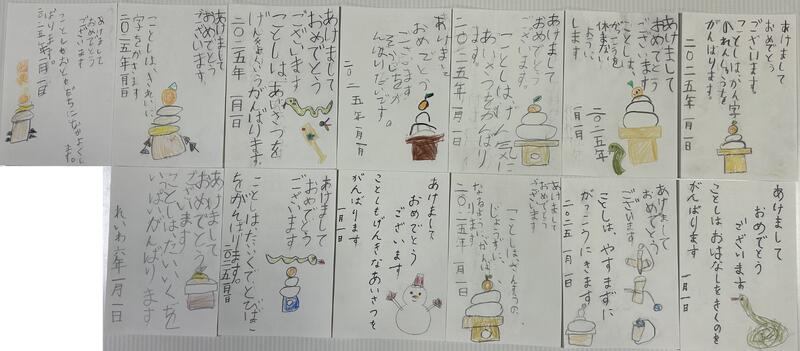 あけまして
おめでとう
ございます
ことしもおともだちになかよくし
二〇二五年一月一日
あけまして
おめでとう
ございます
ことしは、きれいに
字をかきます
二〇二五年一月一日
あけまして
おめでとう
ございます
ことしは、あいさつを
げんきよくがんばります。
二〇二五年 一月一日
あけまして
おめでとう
ございます
そうじをが
んばりたいです。
二〇二五年 一月一日
あけまして
おめでとう
ございます。
ことしは、げん気に
あいさつをがんばり
ます。
二〇二五年 一月一日
あけまして
おめでとう
ございます
ことしは、
がっこうを
休まない
ように
します。
二〇二五年
一月一日
あけまして
おめでとう
ございます。
ことしは、かん字
のれんしゅうを
がんばります。
二〇二五年 一月一日
あけまして
おめでとう
ございます
ことしはたいいくを
いっぱいがんばります
れいわ六年一月一日
あけまして
おめでとう
ございます
ことしはたいくでとびばこ
をがんばります。
二〇二五年一月一日
あけまして
おめでとう
ございます
ことしもげんきなあいさつを
がんばります
一月一日
あけまして
おめでとう
ございます
ことしは、さんすうの、
じょうずに
なるよう、がんば
ります
二〇二五年 一月一日
あけまして
おめでとう
ございます
ことしは、やすまずに
がっこうにきます
二〇二五 一月一日
あけまして
おめでとう
ございます
ことしはおはなしをきくのを
がんばります
一月一日